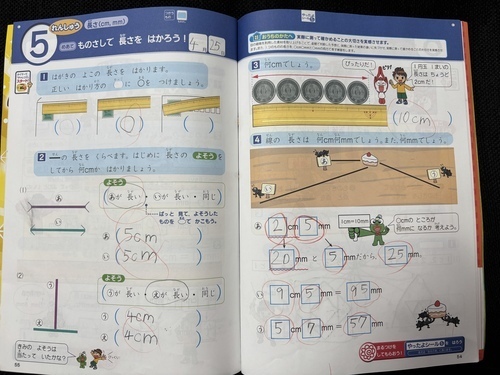 5
れんしゅう
長さ(cm, mm)
ものさしで 長さを はかろう!
4月25
1
はがきの よこの 長さを はかります。
正しい はかり方の □に ○を つけましょう。
○
2
の 長さを くらべます。はじめに 長さの よそう
をしてから 何cmか はかりましょう。
(1)
よそう
あが 長い・いが 長い・同じ
ぱっと 見て、よそうした
ものを ○で かこもう。
あ(5cm)
い(5cm)
(2)
よそう
うが 長い・えが 長い・同じ
う(4cm)
え(4cm)
きみの よそうは
当たって いたかな?
88
おうちのかたへ
実際に測って確かめることの大切さを実感させます。
3
何cmでしょう。
ぴったりだ!
1円玉 1まいの
長さは ちょうど
2cmだ!
(10cm)
4
線の 長さは 何cm何mmでしょう。また、何mmでしょう。
あ
い
う
あ 2cm5mm
20mmと 5mmだから、25mm
1cm=10mm
○cmの ところが
何mmに なるか 考えよう。
い 9cm5mm = 95mm
う 5cm7mm = 57mm
まるつけを
してもらおう!
やったよシールを はろう